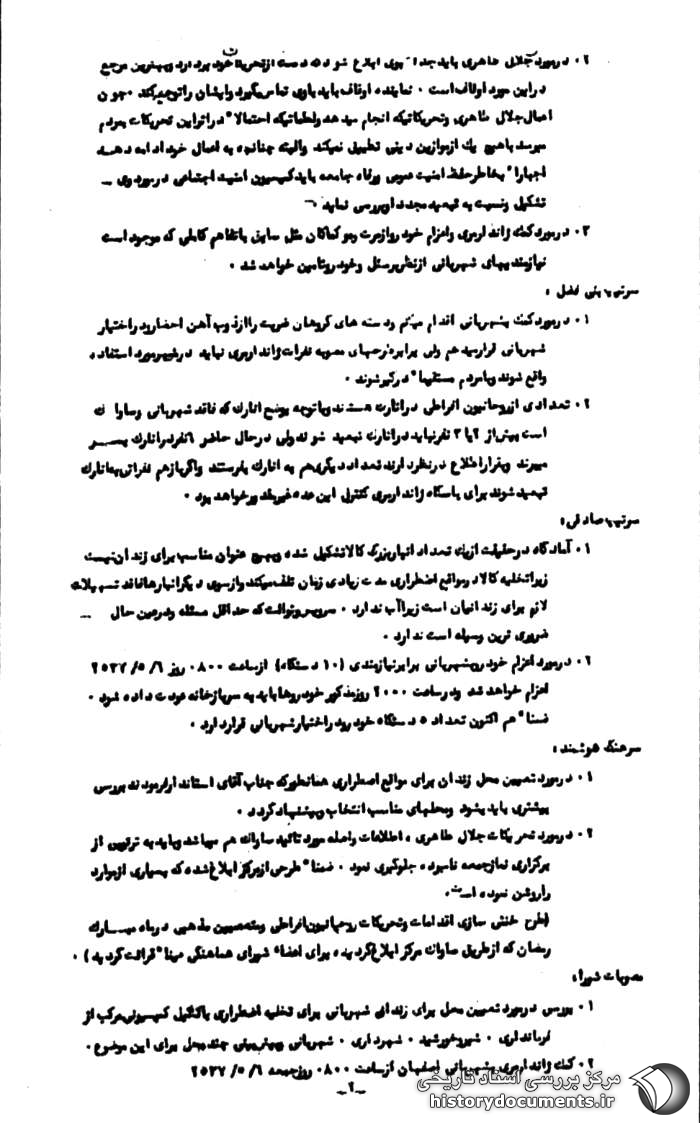 ۲ . در مورد جلال طاهری باید جدا" بوی ابلاغ شود که دست از تحریکات خود بردارد وبهترین مرجع
در این مورد اوقاف است . نماینده اوقاف باید باوی تماس بگیرد وایشان را توجیه کند . چون
اعمال جلال طاهری وتحریکاتیکه انجام میدهد ولطماتیکه احتمالا" در اثر این تحریکات بمردم
میرسد با هیچ یک از موازین دینی تطبیق نمیکند والبته چنانچه به اعمال خود ادامه دهد
اجبارا" بخاطر حفظ امنیت عمومی ورفاه جامعه باید کمیسیون امنیت اجتماعی در مورد وی ــ
تشکیل ونسبت به تبعید مجدد او بررسی نماید .
۳ . در مورد کمک ژاندارمری واعزام خودرو وازمرت وجو کماکان مثل سابق با تفاهم کاملی که موجود است
نیازمندیهای شهربانی از نظر پرسنل وخودرو تامین خواهد شد .
سرتیپ بنی فضل :
۱ . در مورد کمک بشهربانی اقدام میکنم ودسته های گروهان ضربت را از ذوب آهن احضار ودر اختیار
شهربانی قرار میدهم ولی برابر طرحهای مصوبه نفرات ژاندارمری نباید در شهر مورد استفاده
واقع شوند وبا مردم مستقیما" درگیر شوند .
۲ . تعدادی از روحانیون افراطی در انارک هستند وبا توجه بوضع انارک که فاقد شهربانی وساواک
است بیش از ۲ یا ۳ نفر نباید در انارک تبعید شوند ولی در حال حاضر ۶ نفر در انارک بسر
میبرند وبقرار اطلاع در نظر دارند تعداد دیگری هم به انارک بفرستند واگر باز هم نفراتی به انارک
تبعید شوند برای پاسگاه ژاندارمری کنترل این عده غیر مقدور خواهد بود .
سرتیپ صادقی :
۱ . آمادگاه در حقیقت از یک تعداد انبار بزرگ کالا تشکیل شده وبهیچ عنوان مناسب برای زندان نیست
زیرا تخلیه کالا در مواقع اضطراری مدت زیادی زمان تلف میکند واز سوی دیگر انبارها فاقد تسهیلات
لازم برای زندانیان است زیرا آب ندارد . سرویس وتوالت که حداقل مسئله ودر عین حال ــ
ضروری ترین وسیله است ندارد .
۲ . در مورد اعزام خودرو بشهربانی برابر نیازمندی (۱۰ دستگاه) از ساعت ۰۸۰۰ روز ۶/ ۵/ ۲۵۳۷
اعزام خواهد شد ودر ساعت ۲۰۰۰ روز مذکور خودروها باید به سربازخانه عودت داده شود .
ضمنا" هم اکنون تعداد ۵ دستگاه خودرو در اختیار شهربانی قرار دارد .
سرهنگ هوشمند :
۱ . در مورد تعیین محل زندان برای مواقع اضطراری همانطور که جناب آقای استاندار فرمودند بررسی
بیشتری باید بشود ومحلهای مناسب انتخاب وپیشنهاد گردد .
۲ . در مورد تحریکات جلال طاهری ، اطلاعات واصله مورد تائید ساواک هم میباشد وباید به ترتیبی از
برگزاری نماز جمعه نامبرده جلوگیری نمود . ضمنا" طرحی از مرکز ابلاغ شده که بسیاری از موارد
را روشن نموده است .
(طرح خنثی سازی اقدامات وتحریکات روحانیون افراطی ومتعصبین مذهبی در ماه مبارک
رمضان که از طریق ساواک مرکز ابلاغ گردیده برای اعضاء شورای هماهنگی عینا" قرائت گردید) .
مصوبات شورا :
۱ . بررسی در مورد تعیین محل برای زندانی شهربانی برای تخلیه اضطراری با تشکیل کمیسیونی مرکب از
فرمانداری . شیر و خورشید . شهرداری . شهربانی وپیش بینی چند محل برای این موضوع .
۲ . کمک ژاندارمری بشهربانی اصفهان از ساعت ۰۸۰۰ روز جمعه ۶/ ۵/ ۲۵۳۷
ــ۲ــ
مرکز بررسی اسناد تاریخی
historydocuments.ir